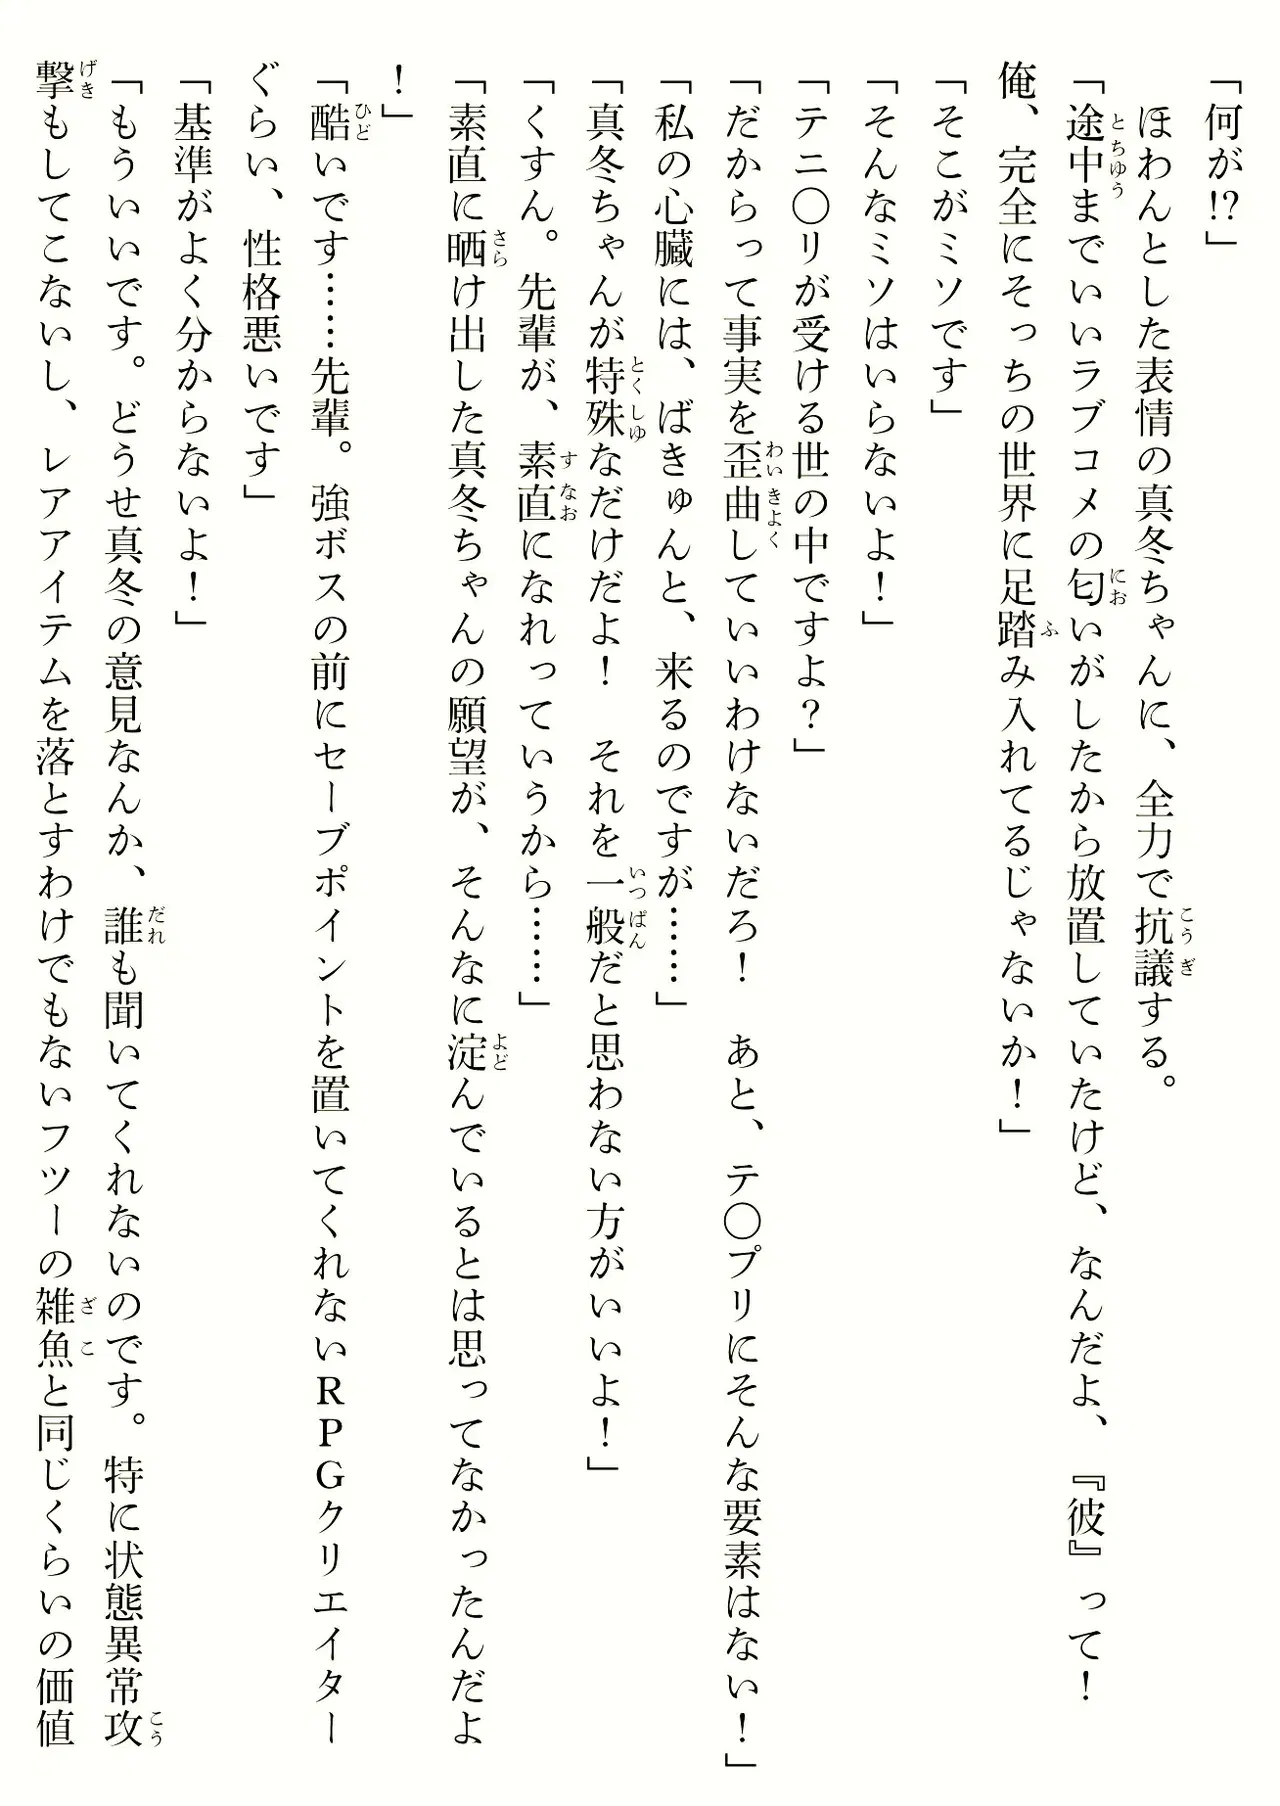 「何が!?」
　ほわんとした表情の真冬ちゃんに、全力で抗議する。
「途中までいいラブコメの匂いがしたから放置していたけど、なんだよ、『彼』って！
俺、完全にそっちの世界に足踏み入れてるじゃないか！」
「そこがミソです」
「そんなミソはいらないよ！」
「テニ〇リが受ける世の中ですよ？」
「だからって事実を歪曲していいわけないだろ！　あと、テ〇プリにそんな要素はない！」
「私の心臓には、ばきゅんと、来るのですが……」
「真冬ちゃんが特殊なだけだよ！　それを一般だと思わない方がいいよ！」
「くすん。先輩が、素直になれっていうから……」
「素直に晒け出した真冬ちゃんの願望が、そんなに淀んでいるとは思ってなかったんだよ
！」
「酷いです……先輩。強ボスの前にセーブポイントを置いてくれないＲＰＧクリエイター
ぐらい、性格悪いです」
「基準がよく分からないよ！」
「もういいです。どうせ真冬の意見なんか、誰も聞いてくれないのです。特に状態異常攻
撃もしてこないし、レアアイテムを落とすわけでもないフツーの雑魚と同じくらいの価値